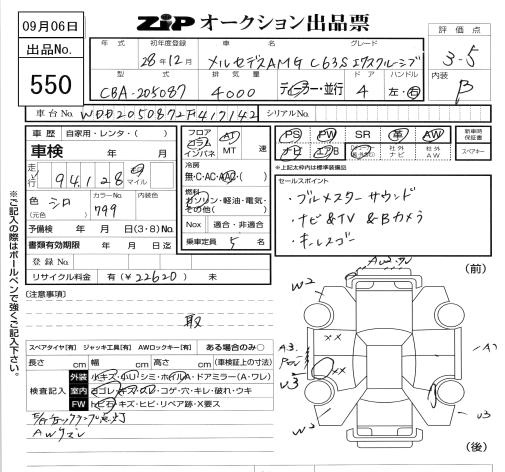 09月06日
出品No.
550
ZIP オークション出品票
評価点
3-5
内装
B
年式 初年度登録 車名 グレード
28年12月 メルセデスAMG C63S エクスクルーシブ
型式 排気量 ディーラー・並行 ドア ハンドル
CBA-205087 4000 4 左・右
車台No. WDD2050872F417142 シリアルNo.
車歴 自家用・レンタ・( )
車検 年 月
走行 94,128 マイル
色 シロ カラーNo. 799 内装色
(元色)
予備検 年 月 日(3・8)No.
書類有効期限 年 月 日迄
登録No.
リサイクル料金 有(¥22620) 未
フロア コラム インパネ AT MT 速
冷房
無・C・AC・AAC・( )
燃料
ガソリン・軽油・電気・その他( )
Nox 適合・非適合
乗車定員 5 名
PS PW SR 革 AW
ナビ エアB 社外ナビ 社外AW
新車時保証書
スペアキー
*上記太枠内は標準装備品
セールスポイント
・ブルメスターサウンド
・ナビ&TV &Bカメラ
・キーレスゴー
※ご記入の際はボールペンで強くご記入下さい。
[注意事項]
取
スペアタイヤ[有] ジャッキ工具[有] AWロックキー[有] ある場合のみ○
長さ cm 幅 cm 高さ cm (車検証上の寸法)
検査記入
外装 小キズ・小U・シミ・ホイルA・ドアミラー(A・ワレ)
室内 ヨゴレ・キズ・スレ・コゲ・穴・キレ・破れ・ウキ
FW トビ石・キズ・ヒビ・リペア跡・X要ス
点灯
(前)
W2
××
A3
××
U3
W2
U3
(後)